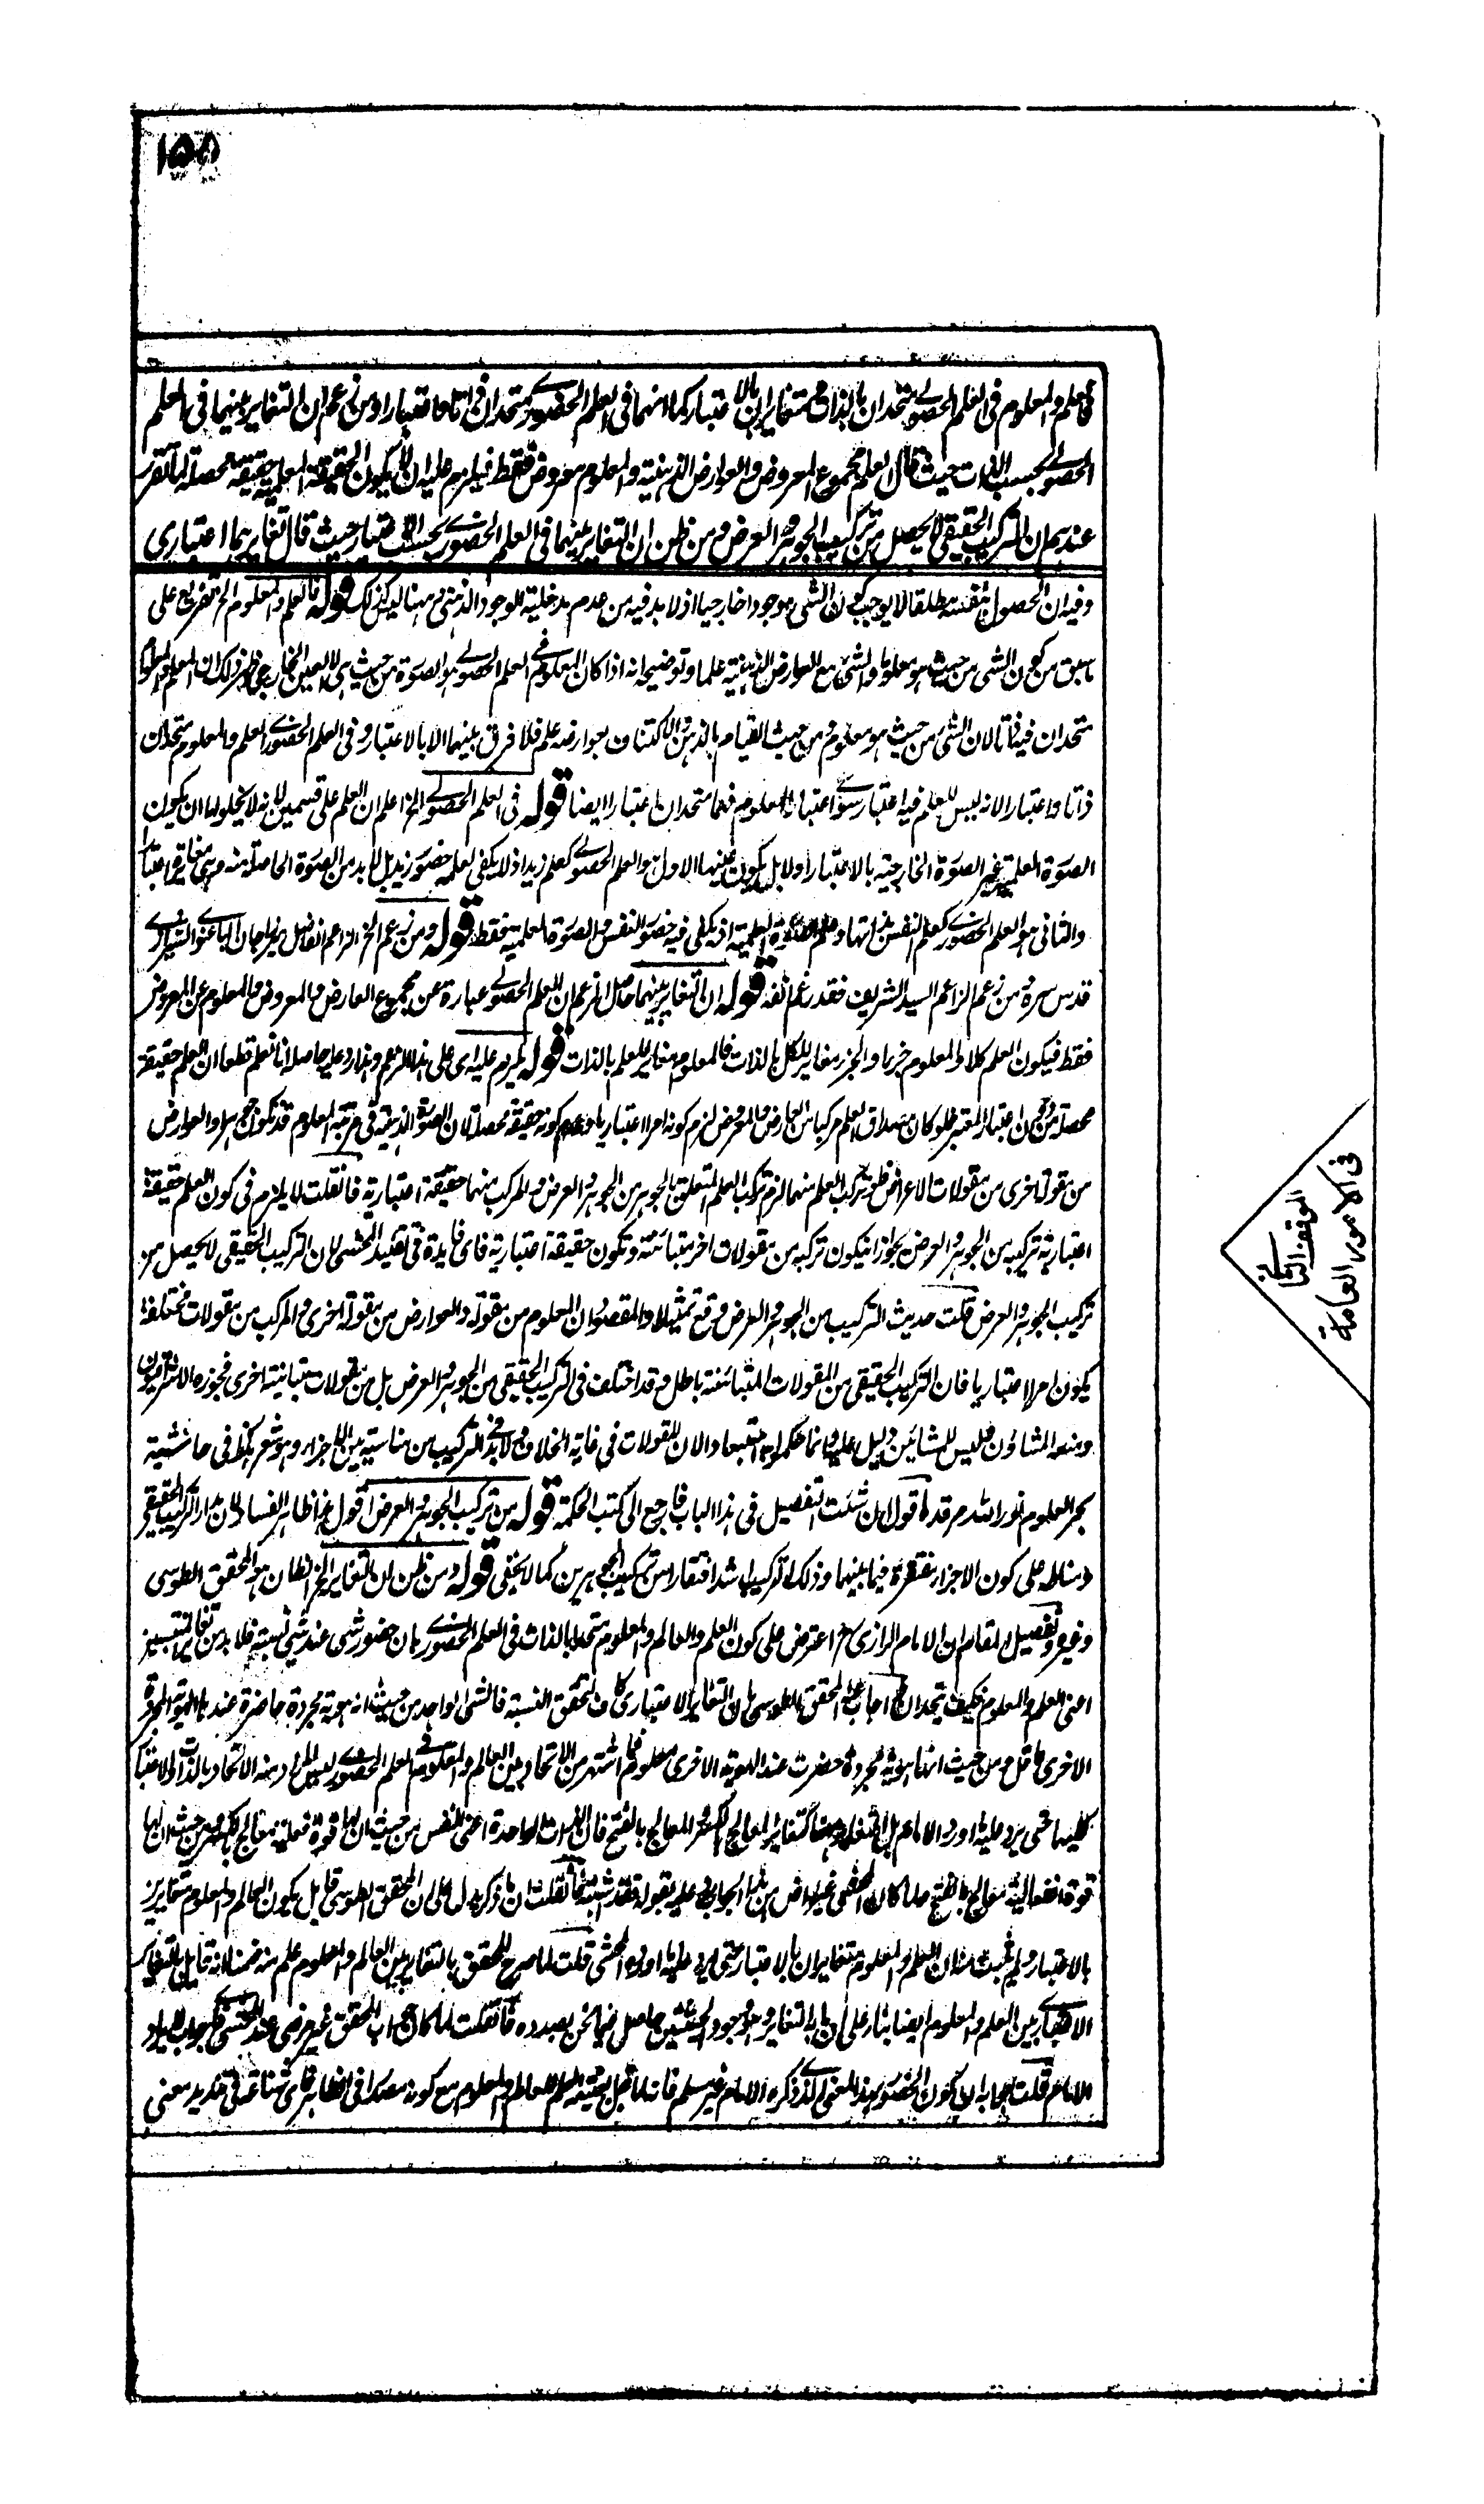 ١٥٥
فالعلم والمعلوم في العلم الحصولي متحدان بالذات متغايران بالاعتبار كما انهما في العلم الحضوري متحدان ذاتا واعتبارا ومن زعم ان التغاير بينهما في العلم
الحصولي بحسب الذات حيث قال العلم مجموع المعروض والعوارض الذهنية والمعلوم معروض فقط فيلزم عليه ان لا يكون الحقيقة العلمية حقيقة محصلة لما تقرر
عندهم ان التركيب الحقيقي لا يحصل من تركيب الجوهر والعرض ومن ظن ان التغاير بينهما في العلم الحضوري بحسب الاعتبار حيث قال تغايرهما اعتباري
وفيه ان الحصول بنفسه مطلقا لا يوجب كون الشئ موجودا خارجيا اذ لا بد فيه من عدم مدخلية الوجود الذهني وههنا ليس كذلك قوله فالعلم والمعلوم الخ تفريع على
ما سبق من كون الشئ من حيث هو معلوما والشئ مع العوارض الذهنية علما وتوضيحه انه اذا كان المعلوم في العلم الحصولي هو الصورة من حيث هي لا العين الخارجي فظهر ذلك ان العلم والمعلوم
متحدان فيه ذاتا لان الشئ من حيث هو معلوم ومن حيث القيام بالذهن والاكتناف بعوارضه علم فلا فرق بينهما الا بالاعتبار وفي العلم الحضوري العلم والمعلوم متحدان
ذاتا واعتبارا لانه ليس للعلم فيه اعتبار سوى اعتبار المعلوم فهما متحدان اعتبارا ايضا قوله في العلم الحصولي الخ اعلم ان العلم على قسمين لانه لا يخلو اما ان يكون
الصورة العلمية غير الصورة الخارجية بالاعتبار او لا بل يكون عينها الاول هو العلم الحصولي كعلم زيد اذ لا يكفي لعلمه حضور زيد بل لا بد من الصورة الحاصلة منه وهي مغايرة له اعتبارا
والثاني هو العلم الحضوري كعلم النفس بذاتها وعلم الصورة العلمية اذ يكفي فيه حضور النفس والصورة العلمية فقط قوله ومن زعم الخ الزاعم الفاضل ميرزاجان الباغنوي الشيرازي
قدس سره ومن زعم الزاعم السيد الشريف فقد رغم انفه قوله ان التغاير بينهما حاصل الزعم ان العلم الحصولي عبارة عن مجموع العارض والمعروض والمعلوم عن المعروض
فقط فيكون العلم كلا والمعلوم جزءا والجزء مغاير للكل بالذات فالمعلوم مغاير للعلم بالذات قوله يلزم عليه اي على هذا الزعم وهذا رد عليه حاصله انا نعلم قطعا ان العلم حقيقة
محصلة من دون اعتبار المعتبر فلو كان مصداق العلم مركبا من العارض والمعروض لزم كونه امرا اعتباريا وعدم كونه حقيقة محصلة لان الصورة الذهنية في مرتبة المعلوم قد تكون جوهرا والعوارض
من مقولة اخرى من مقولات الاعراض فلو تركب العلم منهما لزم تركب العلم المتعلق بالجوهر من الجوهر والعرض والمركب منهما حقيقة اعتبارية فان قلت لا يلزم في كون العلم حقيقة
اعتبارية تركيبه من الجوهر والعرض بجواز ان يكون تركبه من مقولات اخر متبائنة وتكون حقيقة اعتبارية فاي فائدة في تقييد المحشي لان التركيب الحقيقي لا يحصل من
تركيب الجوهر والعرض قلت حديث التركيب من الجوهر والعرض وقع تمثيلا والمقصود ان المعلوم من مقولة والعوارض من مقولة اخرى والمركب من مقولات مختلفة
يكون امرا اعتباريا فان التركيب الحقيقي من المقولات المتبائنة باطل وقد اختلف في التركيب الحقيقي من الجوهر والعرض بل من مقولات متبائنة اخرى فجوزه الاشراقيون
ومنعه المشاؤن وليس للمشائين دليل عليه وانما حكموا به استبعادا لان المقولات في غاية الخلاف ولا بد في التركيب من مناسبة بين الاجزاء وهو شعري كذا في حاشية
بحر العلوم نور الله مرقده اقول ان شئت التفصيل في هذا الباب فارجع الى كتب الحكمة قوله من تركيب الجوهر والعرض اقول هذا ظاهر الفساد لان مدار التركيب الحقيقي
ومناطه على كون الاجزاء مفتقرة فيما بينها وذلك التركيب اشد افتقارا من تركيب الجوهرين كما لا يخفى قوله ومن ظن ان التغاير الخ الظان هو المحقق الطوسي
وغيره وتفصيل المقام ان الامام الرازي رح اعترض على كون العلم والعالم والمعلوم متحدا بالذات في العلم الحضوري بان حضور شئ عند شئ نسبة فلا بد من تغاير المنتسبين
اعني العلم والمعلوم فكيف يتحدان اجاب عنه المحقق الطوسي بان التغاير الاعتباري كاف لتحقق النسبة فالشئ الواحد من حيث انه هوية مجردة حاضرة عندها الهوية المجردة
الاخرى عاقل ومن حيث انها هوية مجردة حضرت عند الهوية الاخرى معلوم فما اشتهر من الاتحاد بين العالم والمعلوم في العلم الحضوري ليس المراد منه الاتحاد بالذات والاعتبار
كليهما حتى يرد عليه ما اورده الامام بل التغاير ههنا كتغاير المعالج بالكسر والمعالج بالفتح فان الذات الواحدة اعني النفس من حيث ان لها قوة فعلية معالج بالكسر ومن حيث ان لها
قوة انفعالية معالج بالفتح ولما كان المحشي غير راض من هذا الجواب رد عليه بقوله فقد اشتبه فان قلت ان ما ذكر دل على ان المحقق الطوسي قائل بكون العالم والمعلوم متغايرين
بالاعتبار ولم يثبت منه ان العلم والمعلوم متغايران بالاعتبار حتى يرد عليه ما اورده المحشي قلت لما صرح المحقق بالتغاير بين العالم والمعلوم علم منه ضمنا انه قائل بالتغاير
الاعتباري بين العلم والمعلوم ايضا بناء على ان ما به التغاير وهو وجود الحيثيتين حاصل فيما نحن بصدده فان قلت لما كان جواب المحقق غير مرضي عند المحشي فما جواب ايراد
الامام قلت اجاب ان كون الحضور بهذا المعنى الذي ذكره الامام غير مسلم فانه لما قيل بعينية العلم للعالم والمعلوم مع كونه مصدرا في الظاهر فاي شناعة في تجديد معنى
الموقف الثاني
في الامور العامة